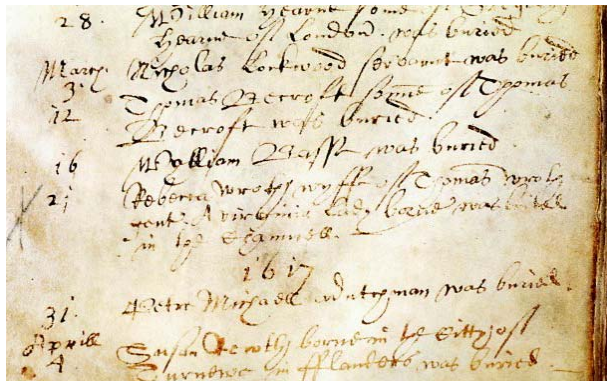 28. William Hearne sonne of
Hearne off London. was buried
March. Nicholas Lockwood servaunt was buried
3.
12 Thomas Becroft sonne off Thomas
Becroft was buried.
16 William Basse was buried.
21 Rebecca Wrothe wyffe off Thomas Wroth
gent. A virginia Lady borne was buried
in the Chauncell.
1617
31. Peter Michaell a dutchman was buried.
Aprill Susan borne in the Citty off
4 in fflanders was buried.